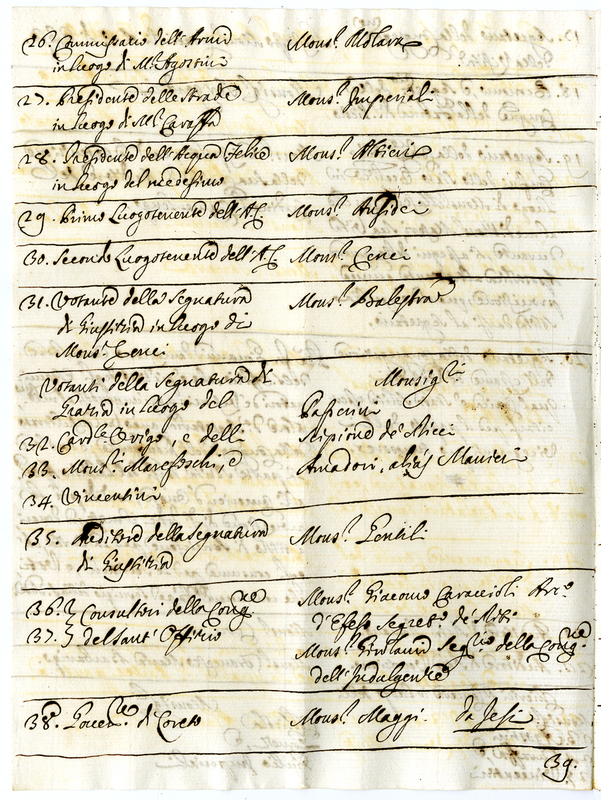 26. Commissario dell'Armi Mons.r Molara
in luogo di M.r Agostini
27. Presidente delle Strade Mons.r Imperiali
in luogo di M.r Caraffa
28. Presidente dell'Acqua Felice Mons.r
in luogo del medesimo
29. Primo Luogotenente dell'A.C. Mons.r Ansidei
30. Secondo Luogotenente dell'A.C. Mons.r Cenci
31. Votante della Segnatura Mons.r Balestra
di Giustitia in luogo di
Mons.r Cenci
Votanti della Segnatura di Monsig.ri
Gratia in luogo del Passerini
32. Card.le Origo, e delli Scipione de' Ricci
33. Mons.ri Marefoschi, e Amadori, alias
34. Vincentini
35. Auditore della Segnatura Mons.r Gentili
di Giustitia
36. Consultori della Cong.ne Mons.r Giacomo Caraccioli Arc.o
37. del Sant'Offitio d'Efeso Segret.o de' Riti
Mons.r Seg.rio della Cong.ne
dell'Indulgenze
38. Gover.re di Loreto Mons.r Maggi da Jesi
39.